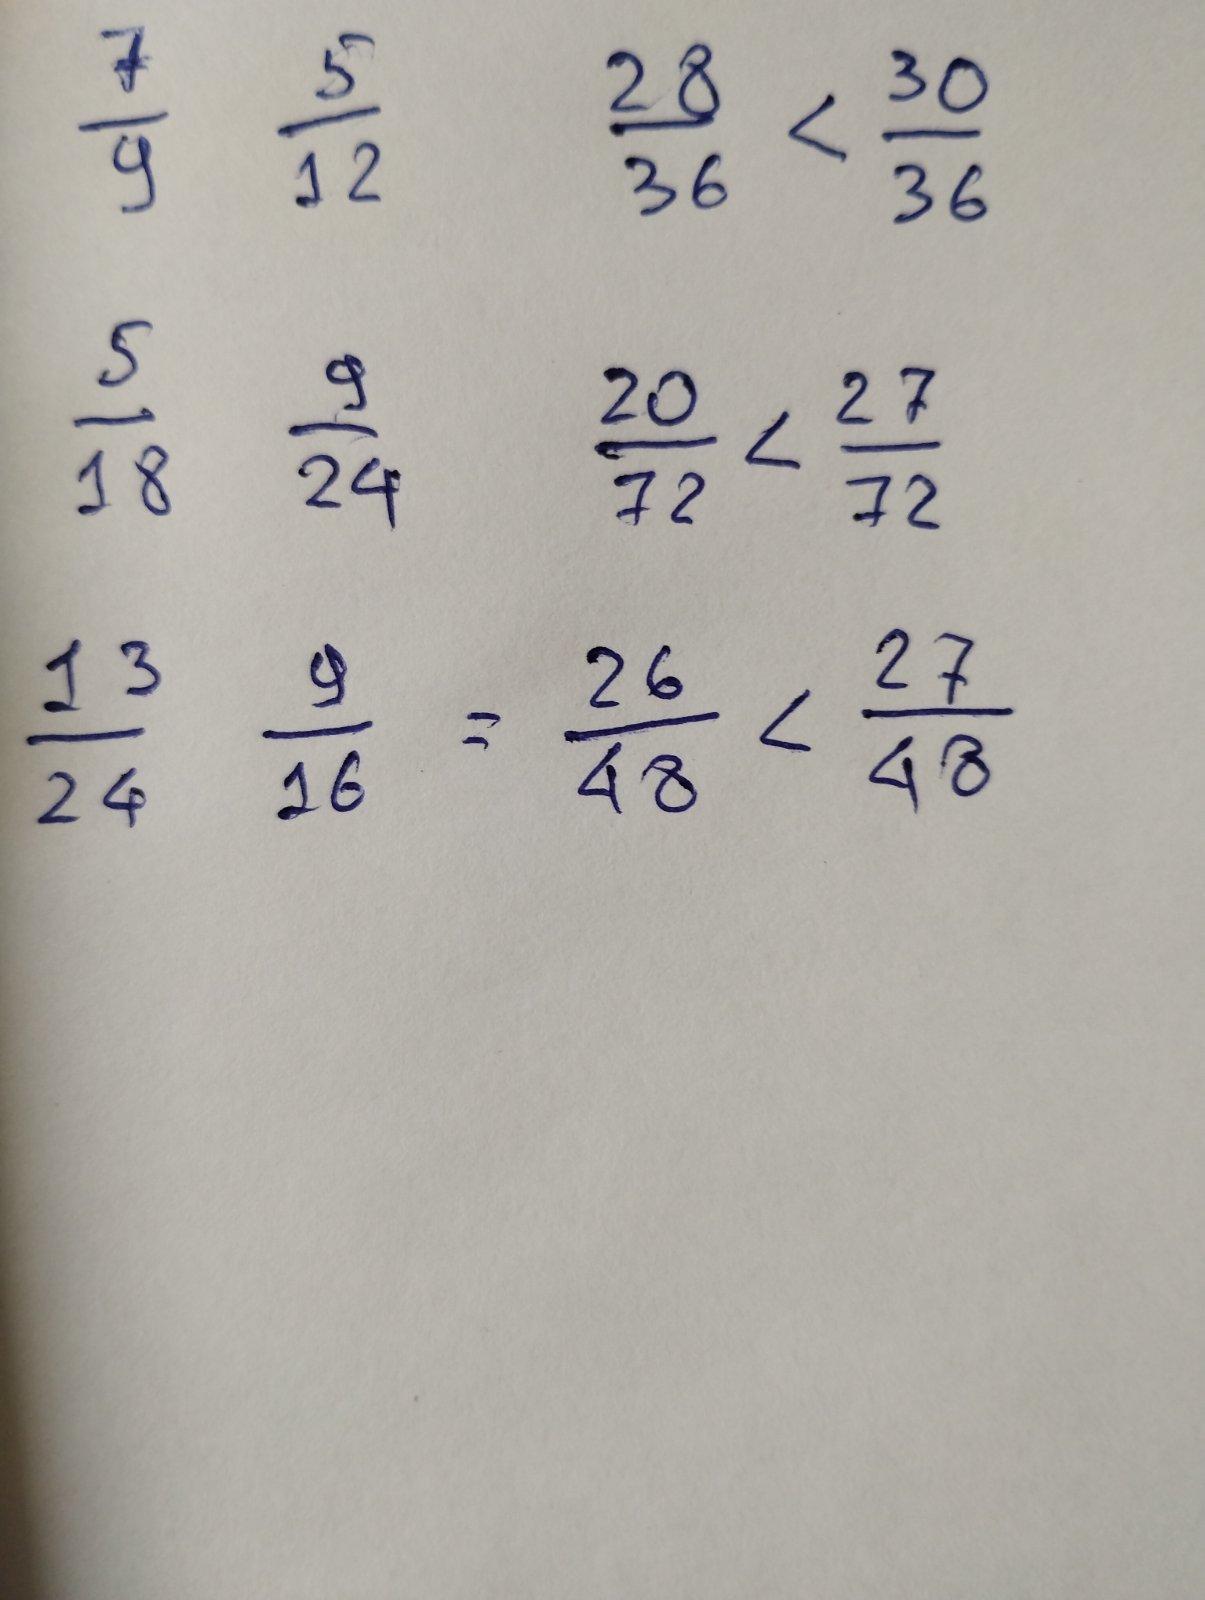 7/9 5/12 28/36 < 30/36
5/18 9/24 20/72 < 27/72
13/24 9/16 = 26/48 < 27/48